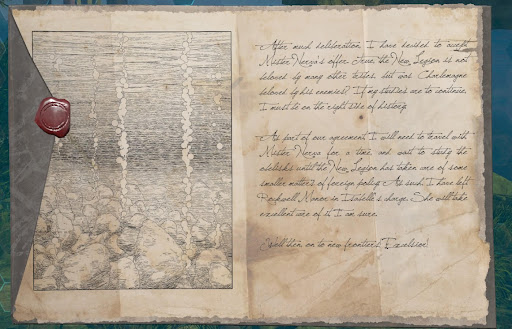 After much deliberation, I have decided to accept
Mister Nerva's offer. True, the New Legion is not
beloved by many other tribes, but was Charlemagne
beloved by his enemies? If my studies are to continue,
I must be on the right side of history.
As part of our agreement, I will need to travel with
Mister Nerva for a time, and wait to study the
obelisks until the New Legion has taken care of some
smaller matters of foreign policy. As such, I have left
Rockwell Manor in Isabelle's charge. She will take
excellent care of it, I am sure.
Well then, on to new frontiers! Excelsior!